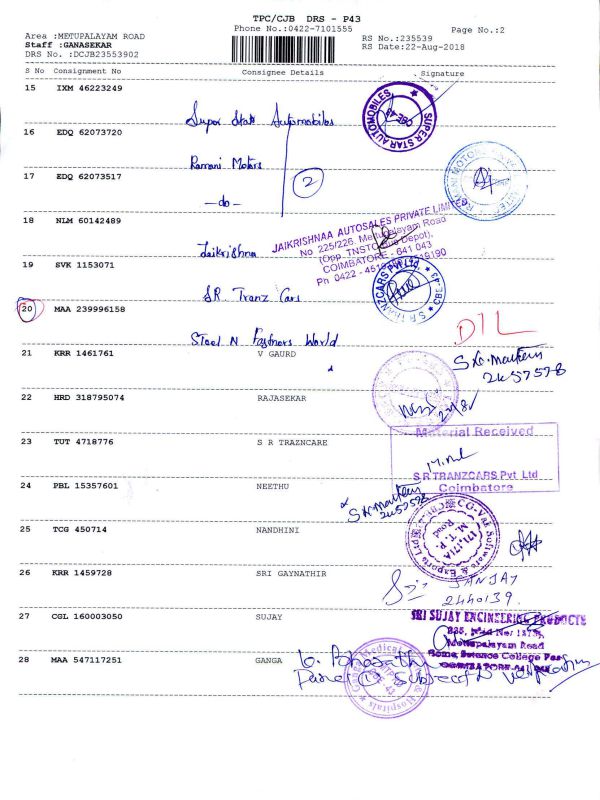 TPC/CJB DRS - P43
Phone No.:0422-7101555
Page No.:2
Area :METUPALAYAM ROAD
RS No.:235539
Staff :GANASEKAR
RS Date:22-Aug-2018
DRS No. :DCJB23553902
S No Consignment No Consignee Details Signature
15 IXM 46223249
Super Star Automobiles
SUPER STAR AUTOMOBILES
CBE-43
16 EDQ 62073720
Ramani Motors
17 EDQ 62073517
2
-do-
18 NLM 60142489
Jaikrishna
JAIKRISHNAA AUTOSALES PRIVATE LIMITED
No. 225/226, Mettupalayam Road
(Opp. TNSTC Bus Depot),
COIMBATORE - 641 043
Ph 0422 - 4519190
19 SVK 1153071
SR. Tranz Cars
S R TRANZCARS PVT LTD
CBE-43
20 MAA 239996158
Steel N Fastners World
DIL
21 KRR 1461761 V GAURD
2457578
22 HRD 318795074 RAJASEKAR
23 TUT 4718776 S R TRAZNCARE
Material Received
S R TRANZCARS Pvt Ltd
Coimbatore
24 PBL 15357601 NEETHU
2457578
25 TCG 450714 NANDHINI
171-171A
M. T. P.
Road
26 KRR 1459728 SRI GAYNATHIR
SANJAY
2440139
27 CGL 160003050 SUJAY
SRI SUJAY ENGINEERING PRODUCTS
Mettupalayam Road
Home Science College Post
COIMBATORE
28 MAA 547117251 GANGA
Medical
Hospitals
43